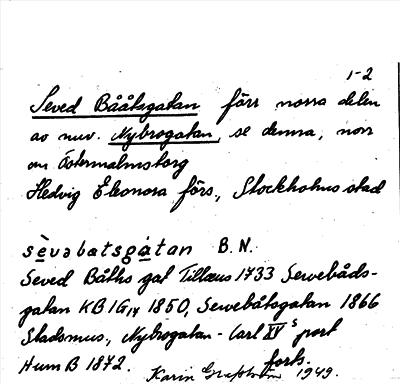 1-2
Seved Bååtsgatan förr norra delen
av nuv. Nybrogatan, se denna, norr
om Östermalmstorg
Hedvig Eleonora förs., Stockholms stad
sèvəbatsgatan B. N.
Seved Båths gat Tillæus 1733 Sewebåds-
gatan KB 1G14 1850, Sewebåtsgatan 1866
Stadsmus., Nybrogatan - Carl XV s port
Hum B 1872. forts.
Karin 1949.